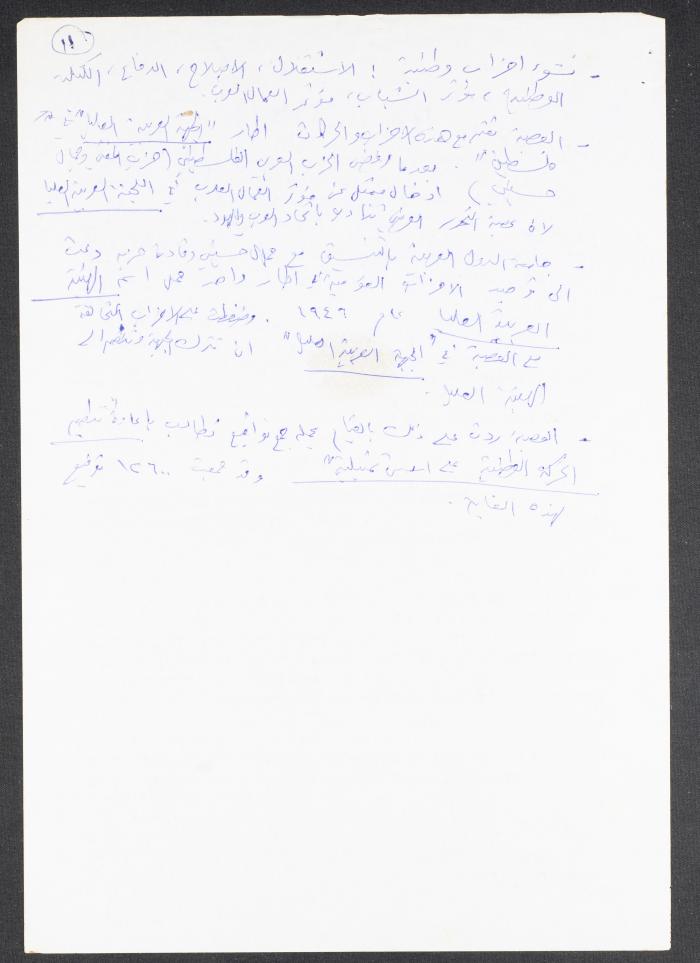 ١١
- نشوء احزاب وطنية : الاستقلال، الاصلاح، الدفاع، الكتلة
الوطنية، مؤتمر الشباب، مؤتمر العمال العرب.
- العصبة مع هذه الاحزاب والحركات اطار "الجبهة العربية العليا" في
فلسطين". بعدما رفض الحزب العربي الفلسطيني (حزب المفتي وجمال
حسيني) ادخال ممثل عن مؤتمر العمال العرب في اللجنة العربية العليا
لان عصبة التحرر الوطني تنادي باتحاد العرب واليهود.
- جامعة الدول العربية بالتنسيق مع جمال حسيني وقادة حزبه دعت
الى توحيد الاحزاب القومية في اطار واحد حمل اسم الهيئة
العربية العليا عام ١٩٤٦. وضغطت على الاحزاب المتحالفة
مع العصبة في "الجبهة العربية العليا" ان تترك الجبهة وتنضم الى
الهيئة العليا.
- العصبة ردت على ذلك بالقيام بحملة جمع تواقيع تطالب بإعادة تنظيم
الحركة الوطنية على اسس تمثيلية" وقد جمعت ١٢٦٠٠ توقيع
لهذه الغاية.